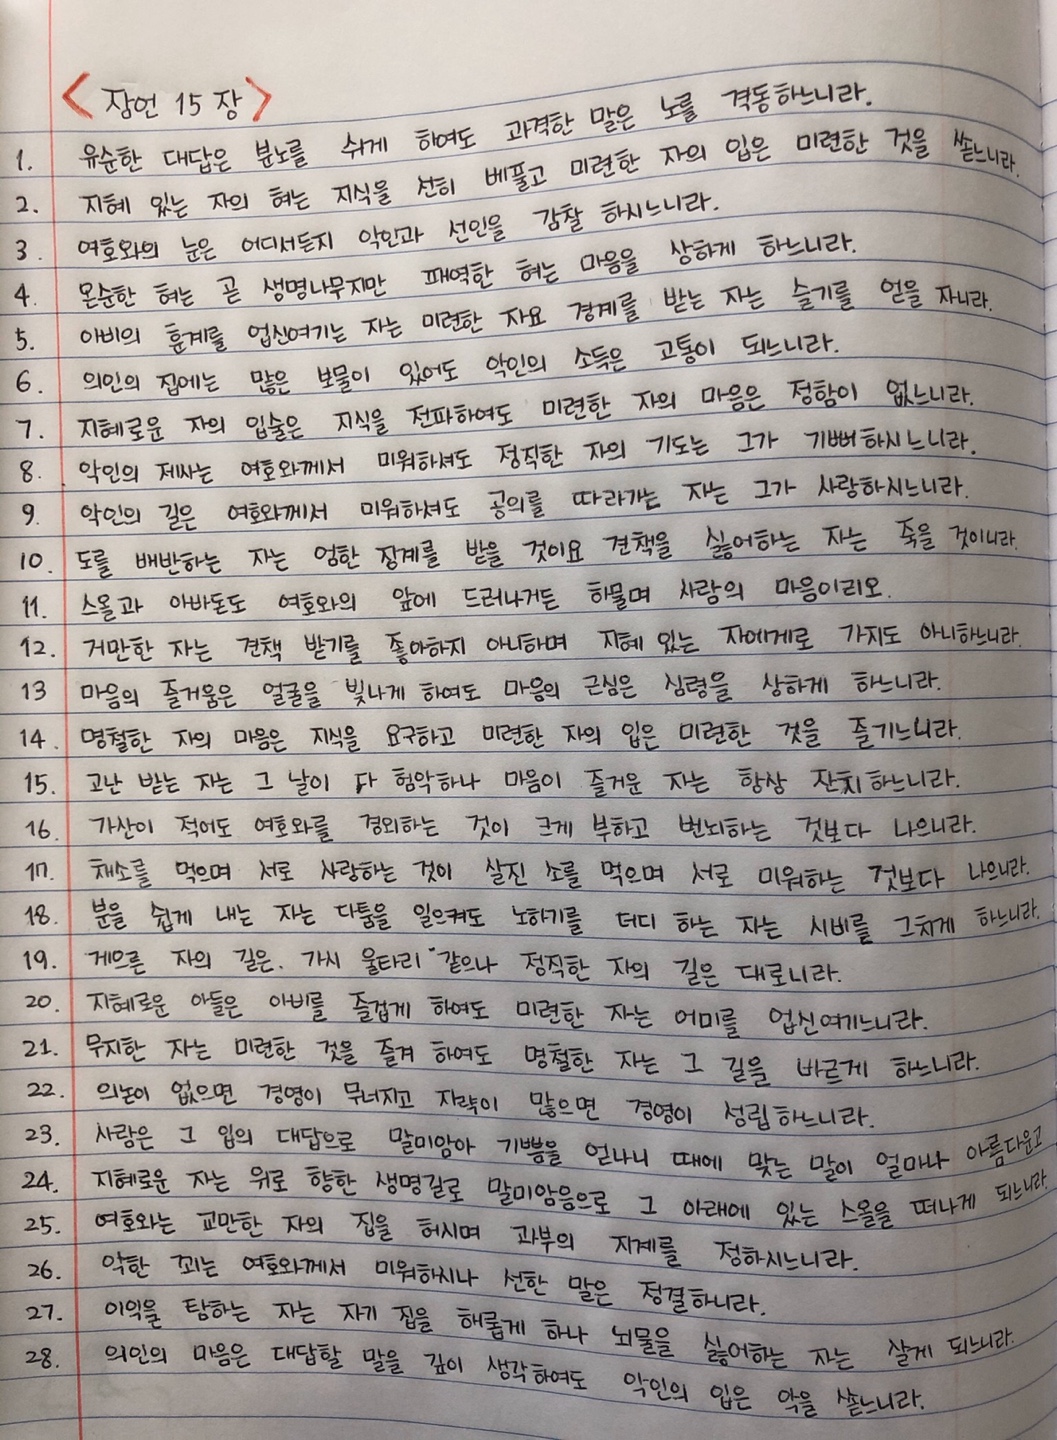 <잠언 15장>
1. 유순한 대답은 분노를 쉬게 하여도 과격한 말은 노를 격동하느니라.
2. 지혜 있는 자의 혀는 지식을 선히 베풀고 미련한 자의 입은 미련한 것을 쏟느니라.
3. 여호와의 눈은 어디서든지 악인과 선인을 감찰 하시느니라.
4. 온순한 혀는 곧 생명나무지만 패역한 혀는 마음을 상하게 하느니라.
5. 아비의 훈계를 업신여기는 자는 미련한 자요 경계를 받는 자는 슬기를 얻을 자니라.
6. 의인의 집에는 많은 보물이 있어도 악인의 소득은 고통이 되느니라.
7. 지혜로운 자의 입술은 지식을 전파하여도 미련한 자의 마음은 정함이 없느니라.
8. 악인의 제사는 여호와께서 미워하셔도 정직한 자의 기도는 그가 기뻐하시느니라.
9. 악인의 길은 여호와께서 미워하셔도 공의를 따라가는 자는 그가 사랑하시느니라.
10. 도를 배반하는 자는 엄한 징계를 받을 것이요 견책을 싫어하는 자는 죽을 것이니라.
11. 스올과 아바돈도 여호와의 앞에 드러나거든 하물며 사람의 마음이리오.
12. 거만한 자는 견책 받기를 좋아하지 아니하며 지혜 있는 자에게로 가지도 아니하느니라.
13 마음의 즐거움은 얼굴을 빛나게 하여도 마음의 근심은 심령을 상하게 하느니라.
14. 명철한 자의 마음은 지식을 요구하고 미련한 자의 입은 미련한 것을 즐기느니라.
15. 고난 받는 자는 그 날이 다 험악하나 마음이 즐거운 자는 항상 잔치하느니라.
16. 가산이 적어도 여호와를 경외하는 것이 크게 부하고 번뇌하는 것보다 나으니라.
17. 채소를 먹으며 서로 사랑하는 것이 살진 소를 먹으며 서로 미워하는 것보다 나으니라.
18. 분을 쉽게 내는 자는 다툼을 일으켜도 노하기를 더디 하는 자는 시비를 그치게 하느니라.
19. 게으른 자의 길은 가시 울타리 같으나 정직한 자의 길은 대로니라.
20. 지혜로운 아들은 아비를 즐겁게 하여도 미련한 자는 어미를 업신여기느니라.
21. 무지한 자는 미련한 것을 즐겨 하여도 명철한 자는 그 길을 바르게 하느니라.
22. 의논이 없으면 경영이 무너지고 지략이 많으면 경영이 성립하느니라.
23. 사람은 그 입의 대답으로 말미암아 기쁨을 얻나니 때에 맞는 말이 얼마나 아름다운고
24. 지혜로운 자는 위로 향한 생명길로 말미암음으로 그 아래에 있는 스올을 떠나게 되느니라.
25. 여호와는 교만한 자의 집을 허시며 과부의 지계를 정하시느니라.
26. 악한 꾀는 여호와께서 미워하시나 선한 말은 정결하니라.
27. 이익을 탐하는 자는 자기 집을 해롭게 하나 뇌물을 싫어하는 자는 살게 되느니라.
28. 의인의 마음은 대답할 말을 깊이 생각하여도 악인의 입은 악을 쏟느니라.